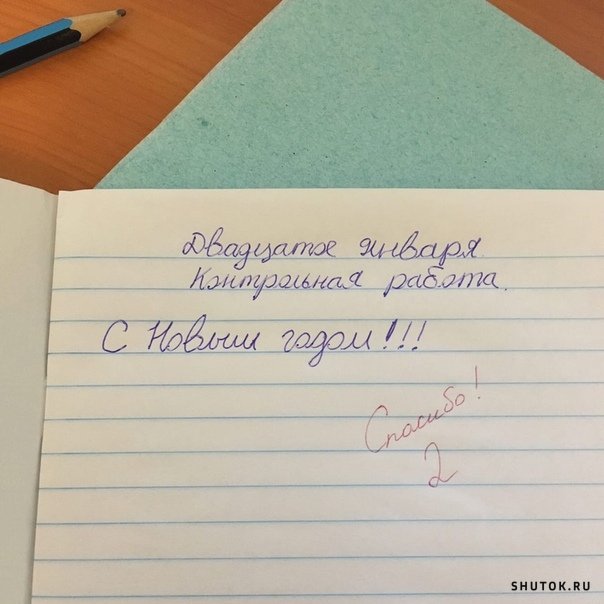 Двадцатое января.
Контрольная работа.
С Новым годом!!!
Спасибо!
2
SHUTOK.RU